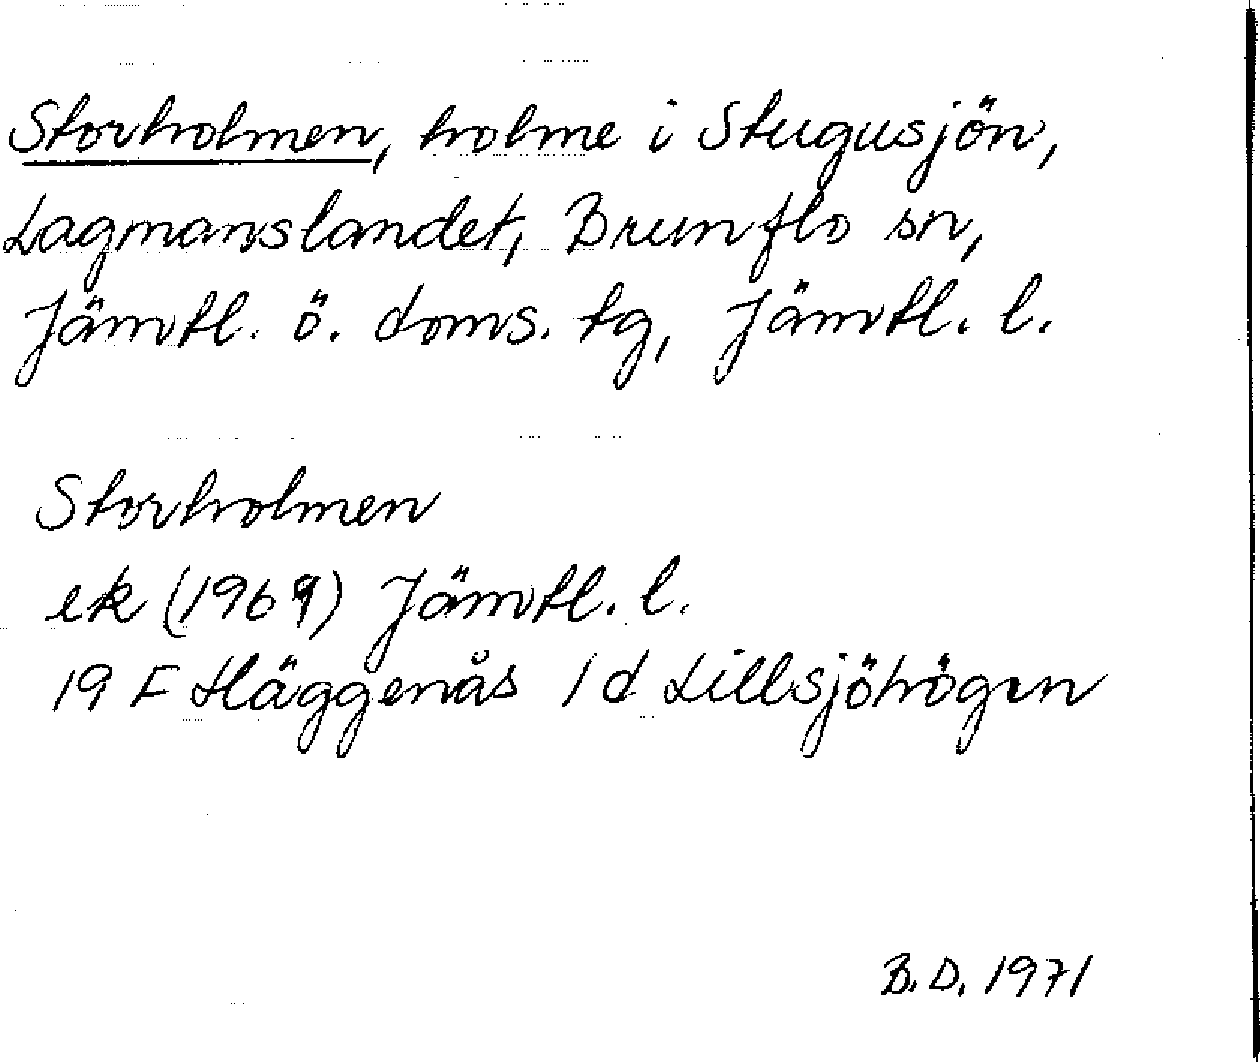 Storholmen, holme i Stugusjön,
Lagmanslandet, Brunflo sn,
Jämtl. ö. doms. tg, Jämtl. l.
Storholmen
ek (1969) Jämtl. l.
19 F Häggenås 1 d Lillsjöhögen
B.D. 1971